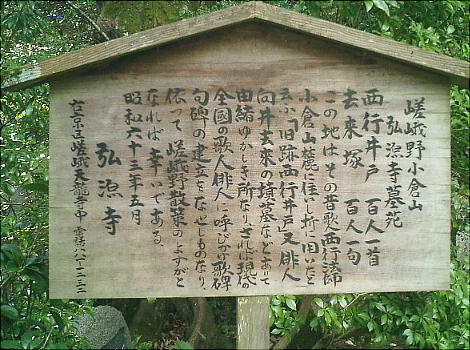 嵯峨野小倉山
弘源寺墓苑
西行井戸 百人一首
去来塚 百人一句
この地は、その昔歌人西行法師
小倉山麓に住いし折に用いたと
云ふ「旧跡西行井戸」又俳人
向井去来の墳墓などあって
由緒ゆかしき所なり。されば現代の
全国の歌人俳人に呼びかけ歌碑
句碑の建立をなせしものなり。
依って嵯峨野散策のよすがと
なれば幸いである。
昭和六十三年五月
弘源寺
右京区嵯峨天龍寺中 電話八八一一二三二